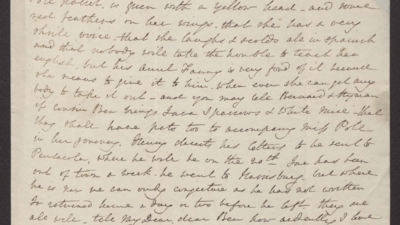 is green with a yellow head - and some
red feathers on her wings. that she has a very
shrill voice. that she laughs & scolds all in spanish
and that nobody will take the trouble to teach her
english, but his aunt Fanny is very fond of it because
she means to give it to him, when ever she can get any
body to take it out - and you may tell Bernard & Hyman
if cousin Ben brings Java Sparrows & White mice - that
they shall have pets too to accompany miss Poll
in her journey. Henry directs his letters to be sent to
Pensacola, where he will be on the 20th. Joe has been
out of town a week. he went to Harrisburg. but where
he is now we can only conjecture as he had not written
returned home a day or two before he left they are
all well. tell My Dear dear Ben how ardently I love